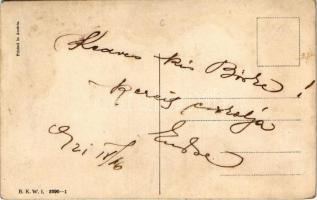 Printed in Austria
Kedves kis Böske!
csókolja
Endre
921 IV/16
B. K. W. I. 2090—1